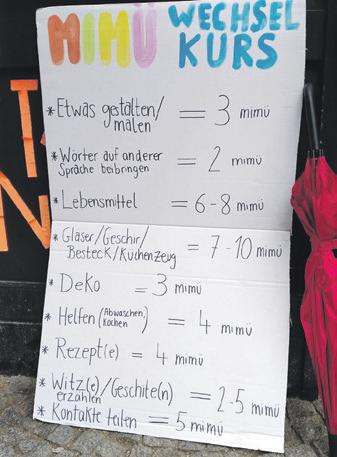 MIMÜ WECHSEL
KURS
* Etwas gestalten/
malen = 3 mimü
* Wörter auf anderer
Sprache beibringen = 2 mimü
* Lebensmittel = 6-8 mimü
* Gläser/Geschir/
Besteck/Küchenzeug = 7-10 mimü
* DeKo = 3 mimü
* Helfen (Abwaschen,
Kochen) = 4 mimü
* Rezept(e) = 4 mimü
* Witz(e)/Geschite(n)
erzählen = 2-5 mimü
* Kontakte teilen = 5 mimü